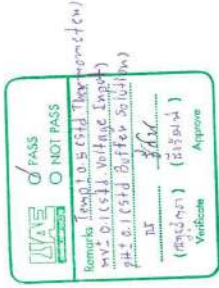 UAE
PASS
NOT PASS
Remarks Temp ± 0.5 (std. Thermometer)
mV ± 0.1 (std. Voltage Input)
pH ± 0.1 (std Buffer Solution)
Verificate
Approve